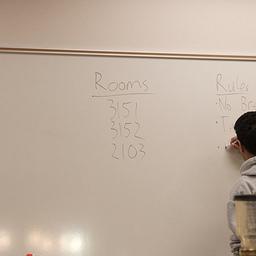 Rooms
3151
3152
2103
Rules
No